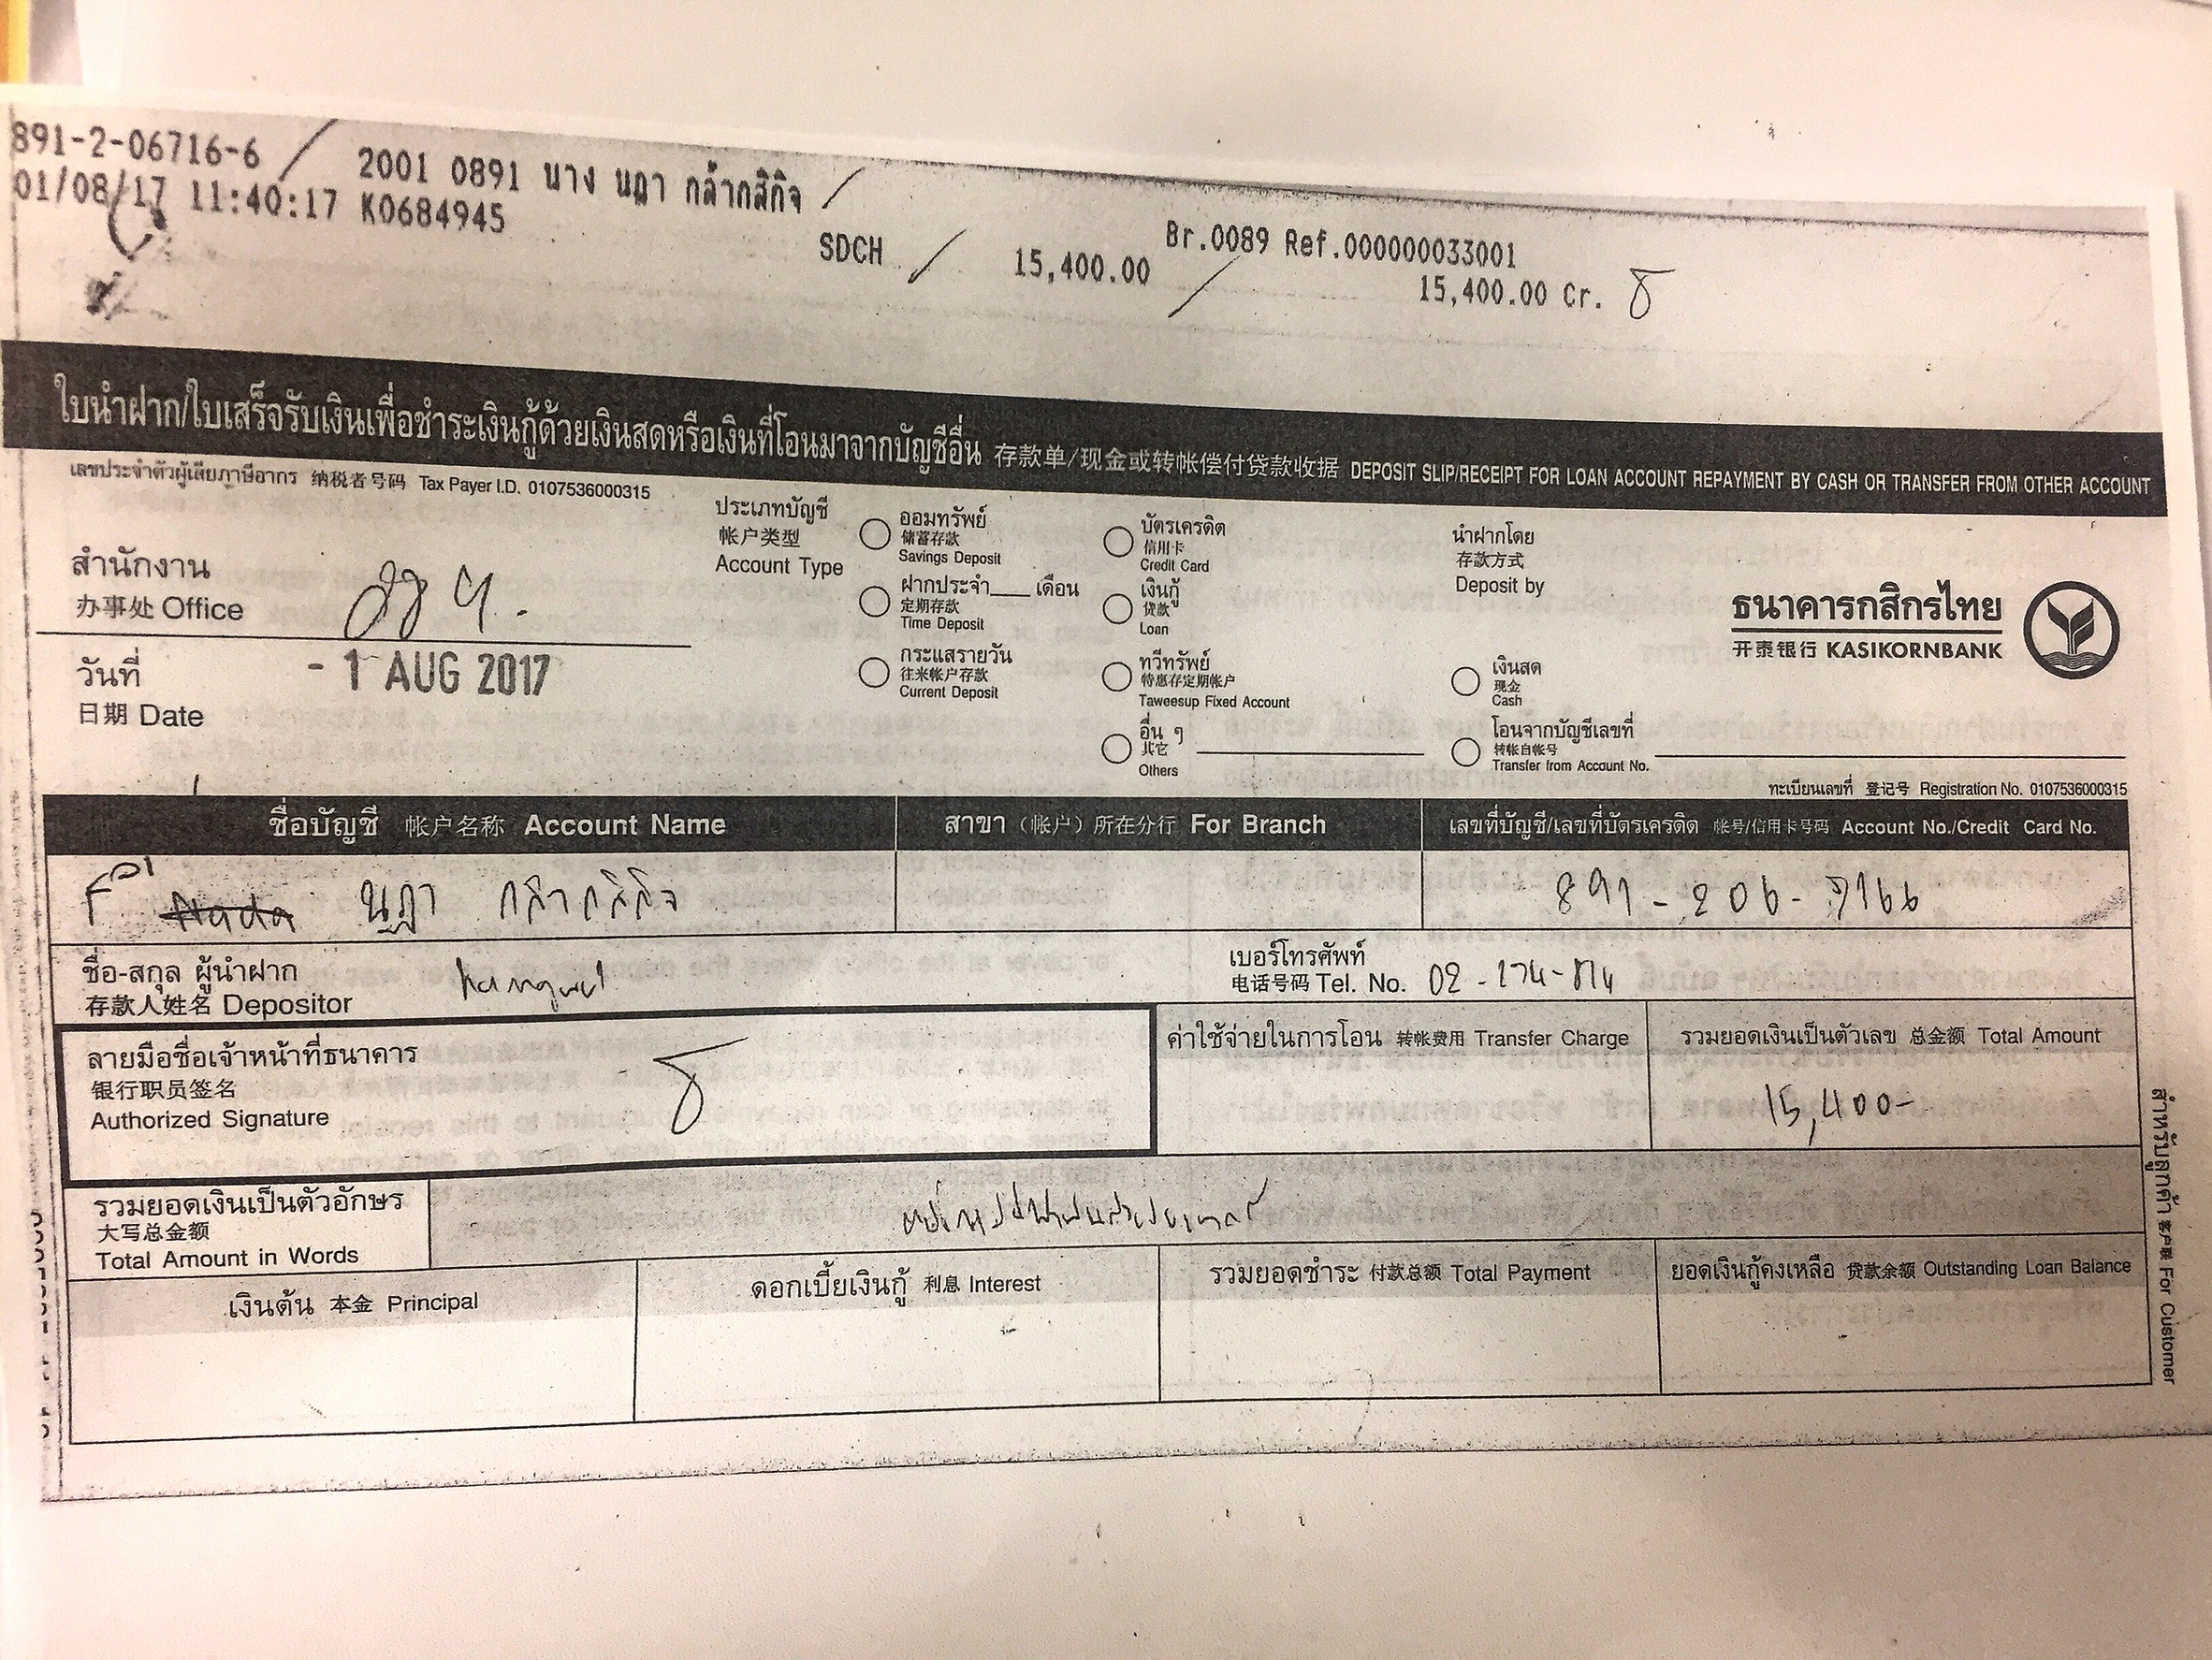 891-2-06716-6 2001 0891 นาง นฎา กล้ากสิกิจ
01/08/17 11:40:17 K0684945
SDCH 15,400.00 Br.0089 Ref.000000033001
15,400.00 Cr.
ใบนำฝาก/ใบเสร็จรับเงินเพื่อชำระเงินกู้ด้วยเงินสดหรือเงินที่โอนมาจากบัญชีอื่น 存款单/现金或转帐偿付贷款收据 DEPOSIT SLIP/RECEIPT FOR LOAN ACCOUNT REPAYMENT BY CASH OR TRANSFER FROM OTHER ACCOUNT
เลขประจำตัวผู้เสียภาษีอากร 纳税者号码 Tax Payer I.D. 0107536000315
สำนักงาน
办事处 Office
วันที่
日期 Date
- 1 AUG 2017
ประเภทบัญชี
帐户类型
Account Type
ออมทรัพย์
储蓄存款
Savings Deposit
ฝากประจำ____เดือน
定期存款
Time Deposit
กระแสรายวัน
往来帐户存款
Current Deposit
บัตรเครดิต
信用卡
Credit Card
เงินกู้
贷款
Loan
ทวีทรัพย์
特惠存定期帐户
Taweesup Fixed Account
อื่น ๆ
其它
Others
นำฝากโดย
存款方式
Deposit by
เงินสด
现金
Cash
โอนจากบัญชีเลขที่
转帐自帐号
Transfer from Account No.
ธนาคารกสิกรไทย
开泰银行 KASIKORNBANK
ทะเบียนเลขที่ 登记号 Registration No. 0107536000315
ชื่อบัญชี 帐户名称 Account Name
สาขา (帐户) 所在分行 For Branch
เลขที่บัญชี/เลขที่บัตรเครดิต 帐号/信用卡号码 Account No./Credit Card No.
นฎา กล้ากสิกิจ
891-206-7166
ชื่อ-สกุล ผู้นำฝาก
存款人姓名 Depositor
เบอร์โทรศัพท์
电话号码 Tel. No.
ลายมือชื่อเจ้าหน้าที่ธนาคาร
银行职员签名
Authorized Signature
ค่าใช้จ่ายในการโอน 转帐费用 Transfer Charge
รวมยอดเงินเป็นตัวเลข 总金额 Total Amount
15,400-
รวมยอดเงินเป็นตัวอักษร
大写总金额
Total Amount in Words
เงินต้น 本金 Principal
ดอกเบี้ยเงินกู้ 利息 Interest
รวมยอดชำระ 付款总额 Total Payment
ยอดเงินกู้คงเหลือ 贷款余额 Outstanding Loan Balance
สำหรับลูกค้า 客户联 For Customer